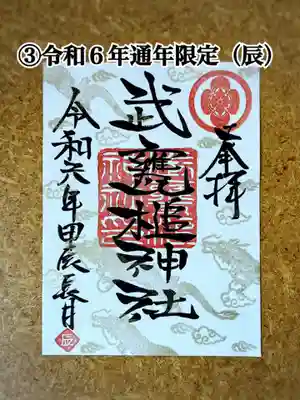 ③令和６年通年限定（辰）
奉拝
武甕槌神社
令和六年甲辰長月
辰